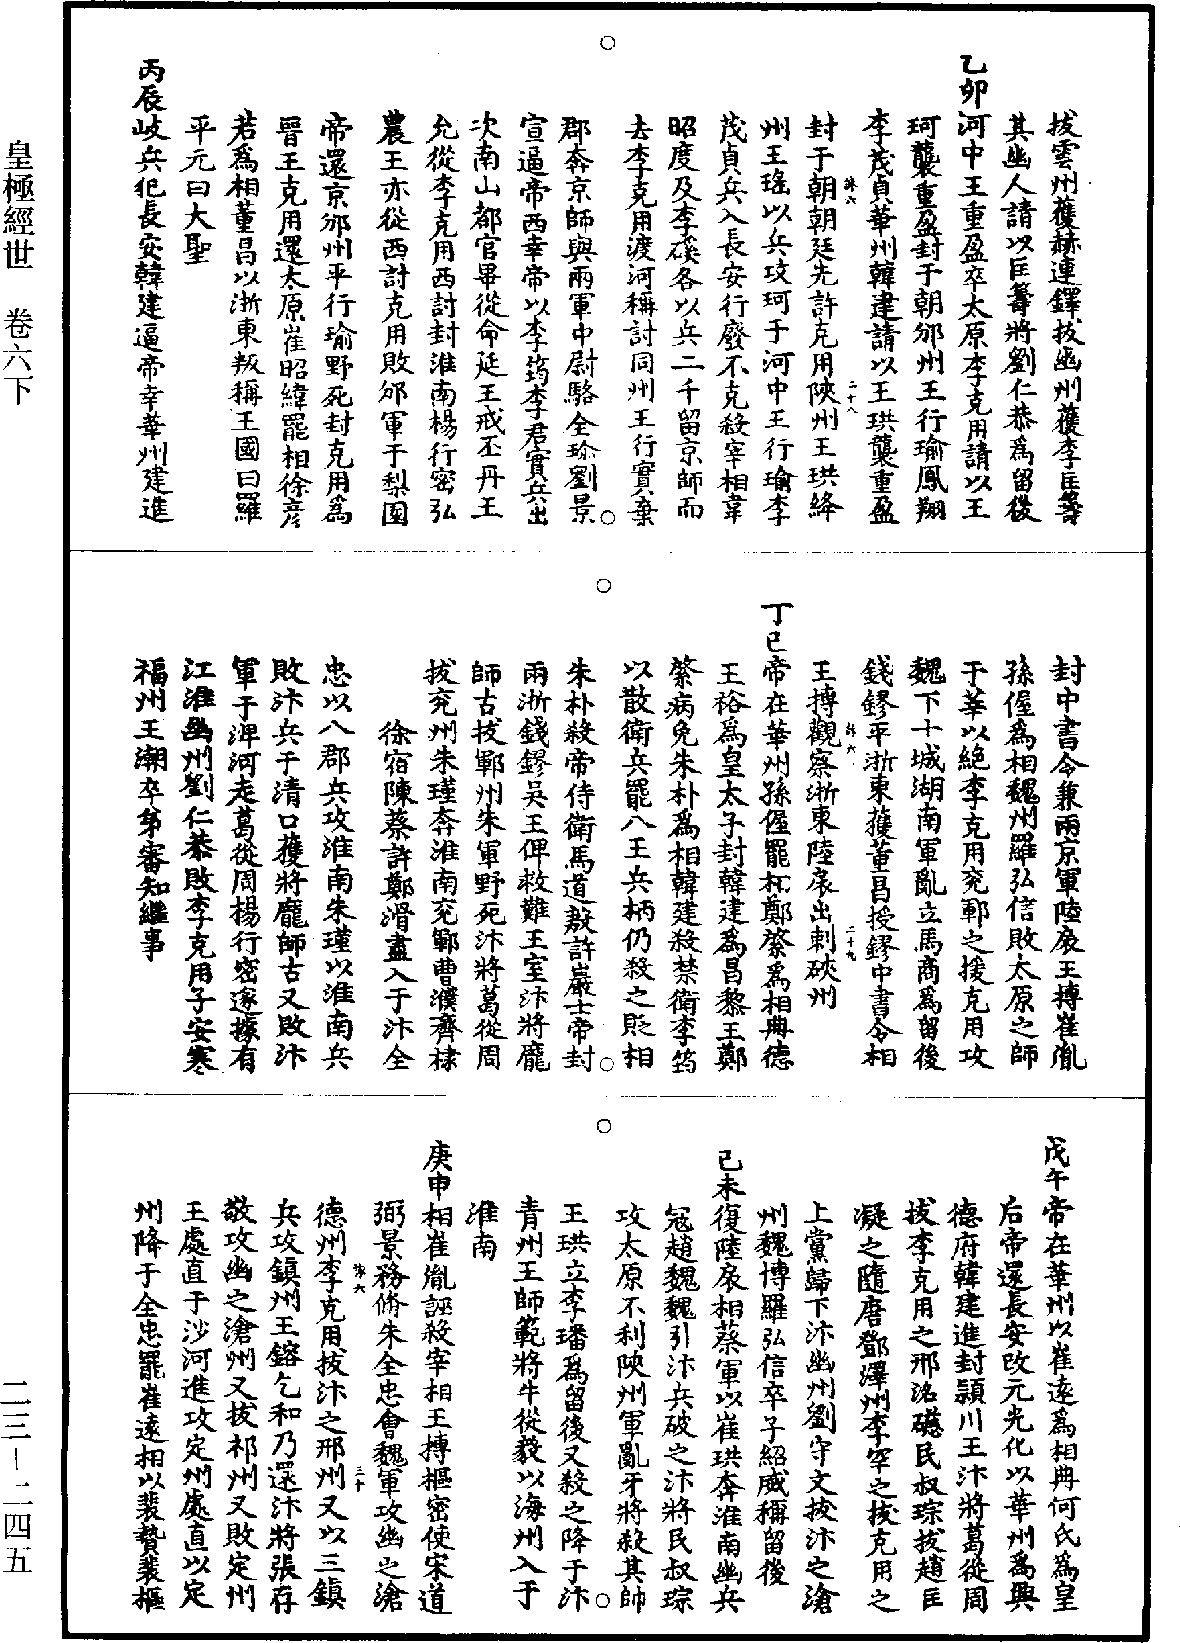 拔雲州獲赫連鐸拔幽州獲李匡籌
其幽人請以匡籌將劉仁恭爲留後
乙卯河中王重盈卒太原李克用請以王
珂襲重盈封于朝邠州王行瑜鳳翔
李茂貞華州韓建請以王珙襲重盈
封于朝朝廷先許克用陝州王珙絳
州王瑤以兵攻珂于河中王行瑜李
茂貞兵入長安行廢不克殺宰相韋
昭度及李磎各以兵二千留京師而
去李克用渡河稱討同州王行實棄
郡奔京師與兩軍中尉駱全瓘劉景
宣逼帝西幸帝以李筠李君實兵出
次南山都官畢從命延王戒丕丹王
允從李克用西討封淮南楊行密弘
農王亦從西討克用敗邠軍于梨園
帝還京邠州平行瑜野死封克用爲
晉王克用還太原崔昭緯罷相徐彦
若爲相董昌以浙東叛稱王國曰羅
平元曰大聖
丙辰岐兵犯長安韓建逼帝幸華州建進
封中書令兼兩京軍陸扆王摶崔胤
孫偓爲相魏州羅弘信敗太原之師
于莘以絕李克用兗鄆之援克用攻
魏下十城湖南軍亂立馬商爲留後
錢鏐平浙東獲董昌授鏐中書令相
王摶觀察浙東陸扆出刺硤州
丁巳帝在華州孫偓罷相鄭綮爲相冊德
王裕爲皇太子封韓建爲昌黎王鄭
綮病免朱朴爲相韓建殺禁衛李筠
以散衛兵罷八王兵柄仍殺之貶相
朱朴殺帝侍衛馬道殷許巖士帝封
兩浙錢鏐吳王俾救難王室汴將龐
師古拔鄆州朱軍野死汴將葛從周
拔兖州朱瑾奔淮南兖鄆曹濮齊棣
徐宿陳蔡許鄭滑盡入于汴全
忠以八郡兵攻淮南朱瑾以淮南兵
敗汴兵于清口獲將龐師古又敗汴
軍于渒河走葛從周楊行密遂據有
江淮幽州劉仁恭敗李克用于安寨
福州王潮卒弟審知繼事
戊午帝在華州以崔遠爲相冊何氏爲皇
后帝還長安改元光化以華州爲興
德府韓建進封潁川王汴將葛從周
拔李克用之邢洺磁民叔琮拔趙匡
凝之隨唐鄧澤州李罕之拔克用之
上黨歸下汴幽州劉守文拔汴之滄
州魏博羅弘信卒子紹威稱留後
己未復陸扆相蔡軍以崔珙奔淮南幽兵
冦趙魏魏引汴兵破之汴將民叔琮
攻太原不利陝州軍亂牙將殺其帥
王珙立李璠爲留後又殺之降于汴
青州王師範將牛從毅以海州入于
淮南
庚申相崔胤誣殺宰相王摶樞密使宋道
弼景務脩朱全忠會魏軍攻幽之滄
德州李克用拔汴之邢州又以三鎮
兵攻鎮州王鎔乞和乃還汴將張存
敬攻幽之滄州又拔祁州又敗定州
王處直于沙河進攻定州處直以定
州降于全忠罷崔遠相以裴贄裴樞
皇極經世　卷六下
二三－二四五